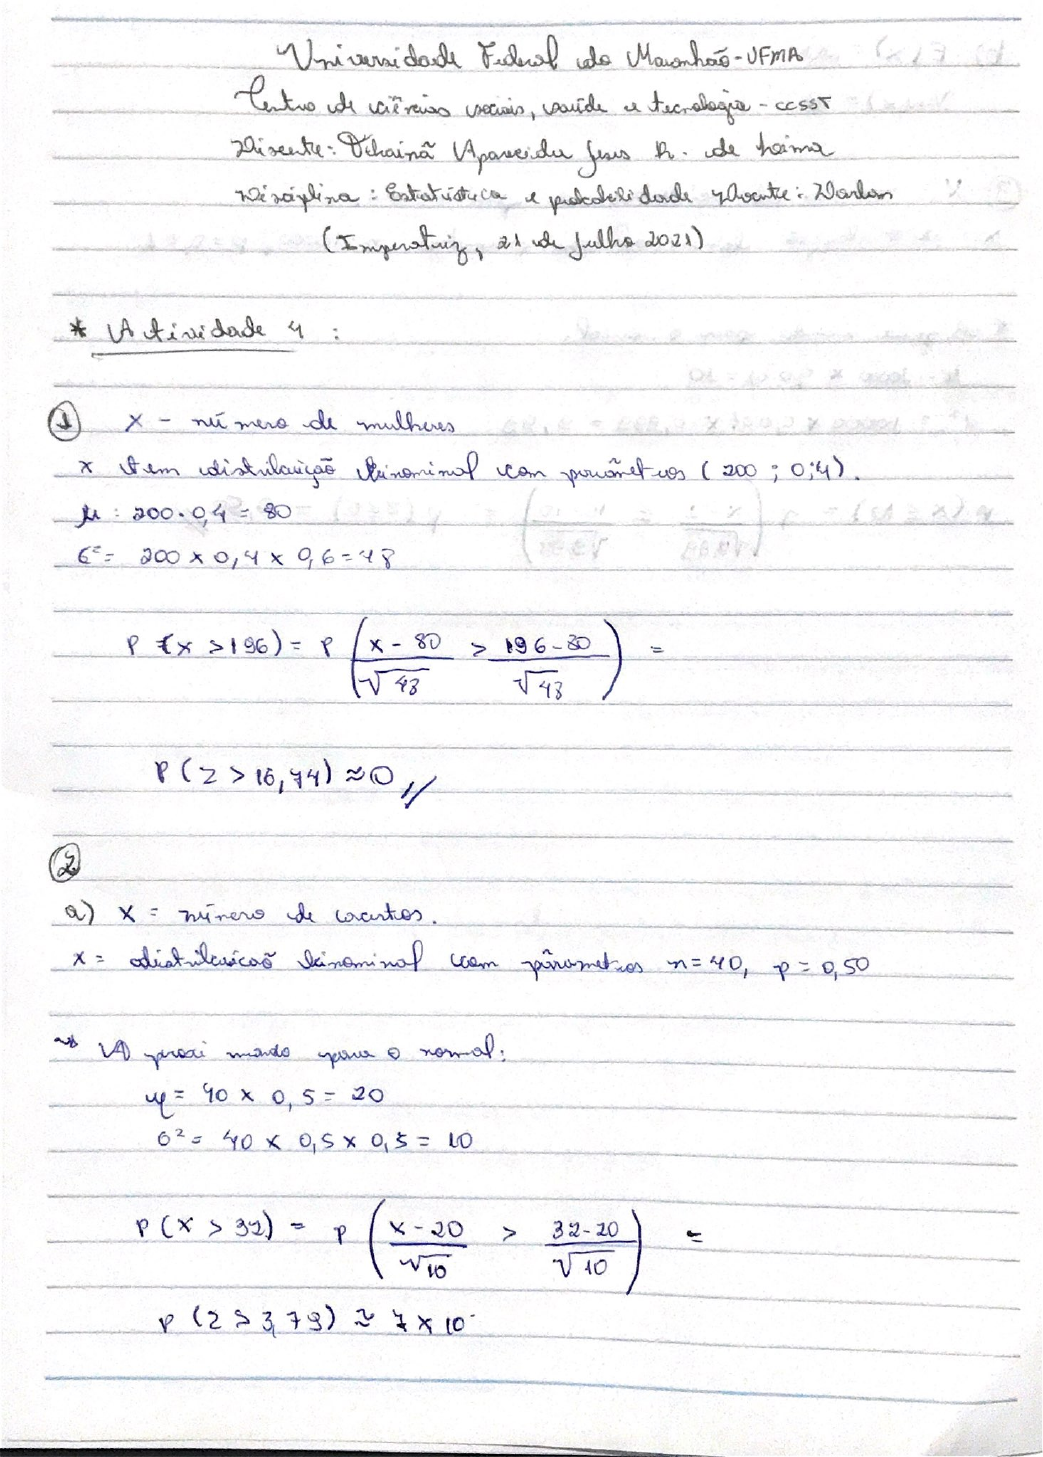 Universidade Federal do Maranhão - UFMA
Centro de ciências sociais, saúde e tecnologia - CCSST
Discente: Aparecida Jesus R. de
Disciplina: Estatística e probabilidade Docente:
(Imperatriz, 21 de Julho 2021)
* Atividade 4:
① X - número de mulheres
x tem distribuição binominal com parâmetros (200 ; 0,4).
μ : 200·0,4 = 80
σ² = 200 x 0,4 x 0,6 = 48
P (x > 196) = P ( x - 80 / √48 > 196 - 80 / √48 ) =
P (Z > 16,74) ≈ 0 //
②
a) X = número de acertos.
X = distribuicaõ binominal com pârametros n = 40, p = 0,50
Aproximando para o normal:
μ = 40 x 0,5 = 20
σ² = 40 x 0,5 x 0,5 = 10
P (X > 32) = P ( x - 20 / √10 > 32 - 20 / √10 ) =
P (Z > 3,79) ≈ 7 x 10⁻